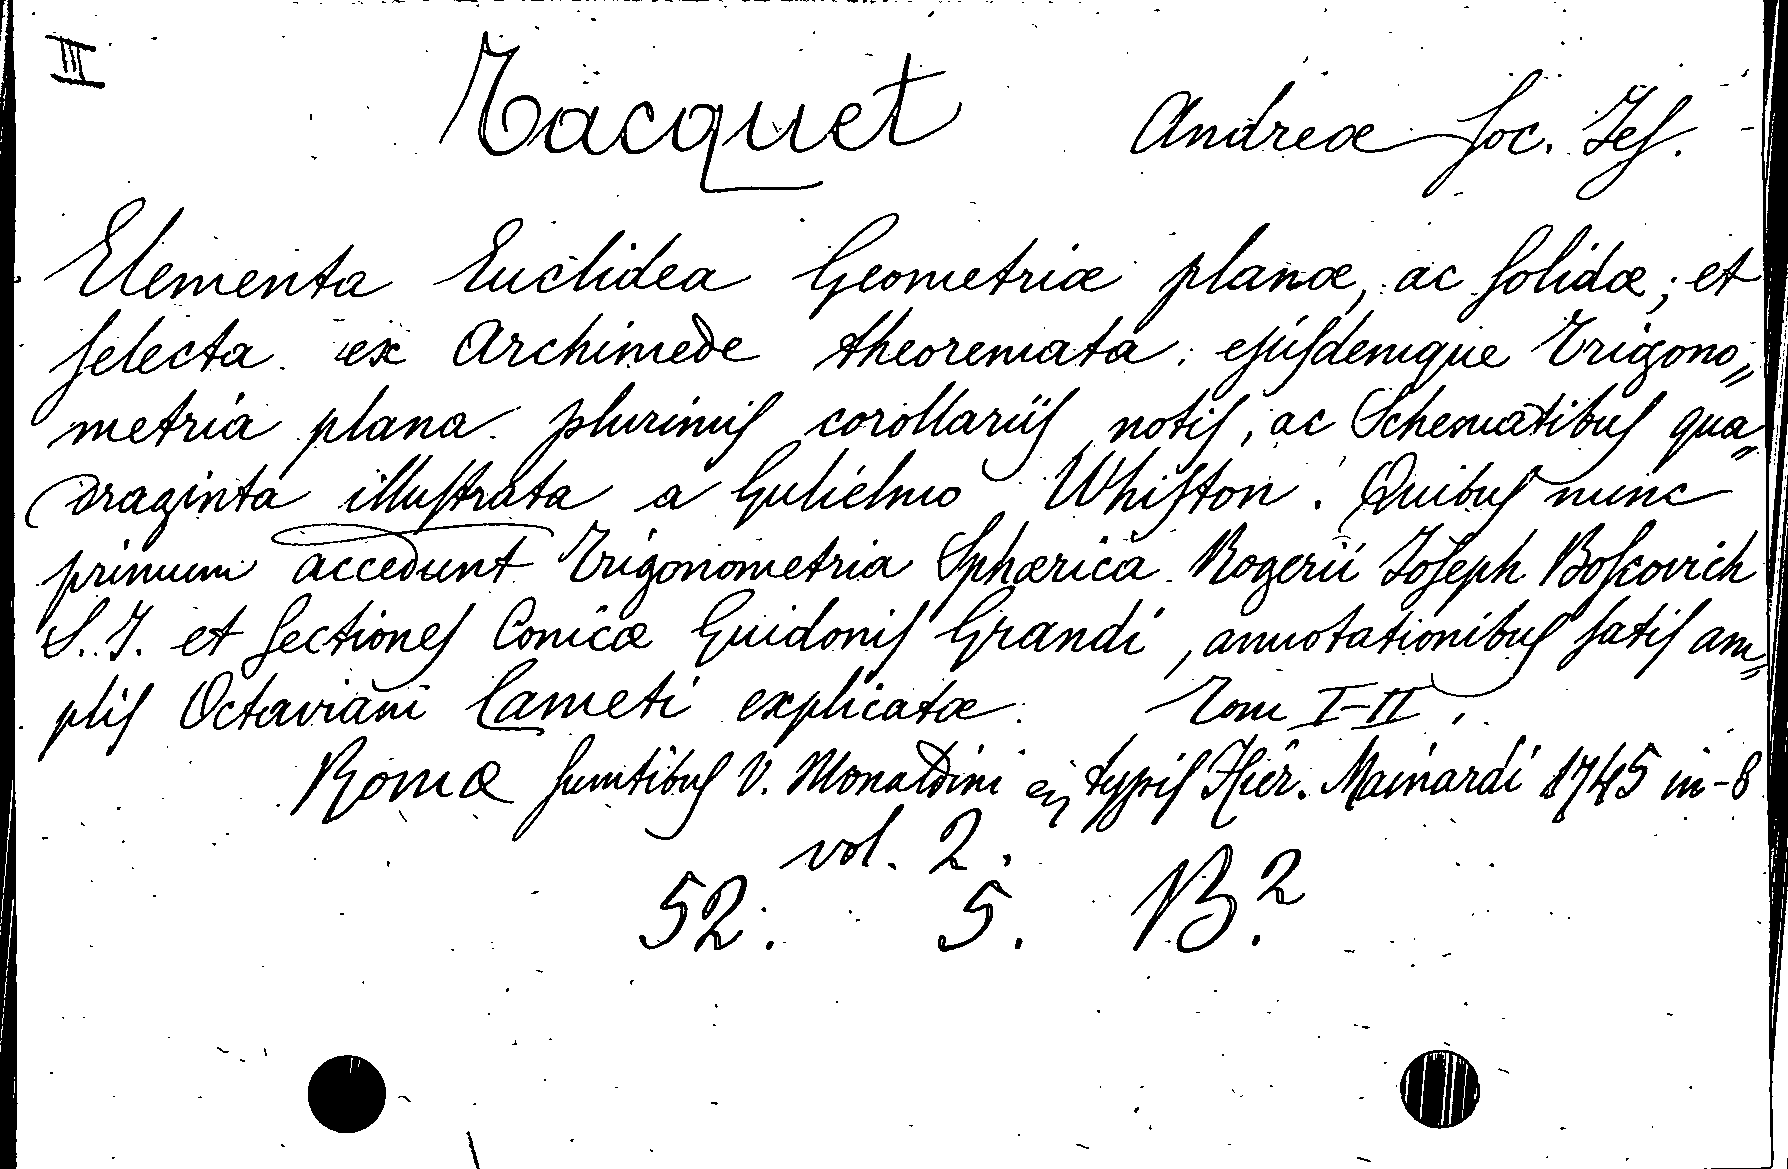 III
Tacquet Andreæ Soc. Jeſ.
Elementa Euclidea Geometriæ planæ, ac ſolidæ; et
ſelecta ex Archimede theoremata: ejúſdemque Trigono„
metria plana. plurimiſ corollariiſ, notiſ, ac Schematibuſ qua„
draginta illuſtrata a Gulielmo Whiſton. Quibuſ nunc
primum accedunt Trigonometria Sphærica Rogerii Joſeph Boſcovich
S. J. et ſectioneſ Conicæ Guidoniſ Grandi, annotationibuſ ſatiſ am„
pliſ Octaviani Cameti explicatæ. Tom I-II.
Romæ ſumtibuſ V. Monaldini ex typiſ Hier. Mainardi 1745 in-8
vol. 2.
52. 5. B.²